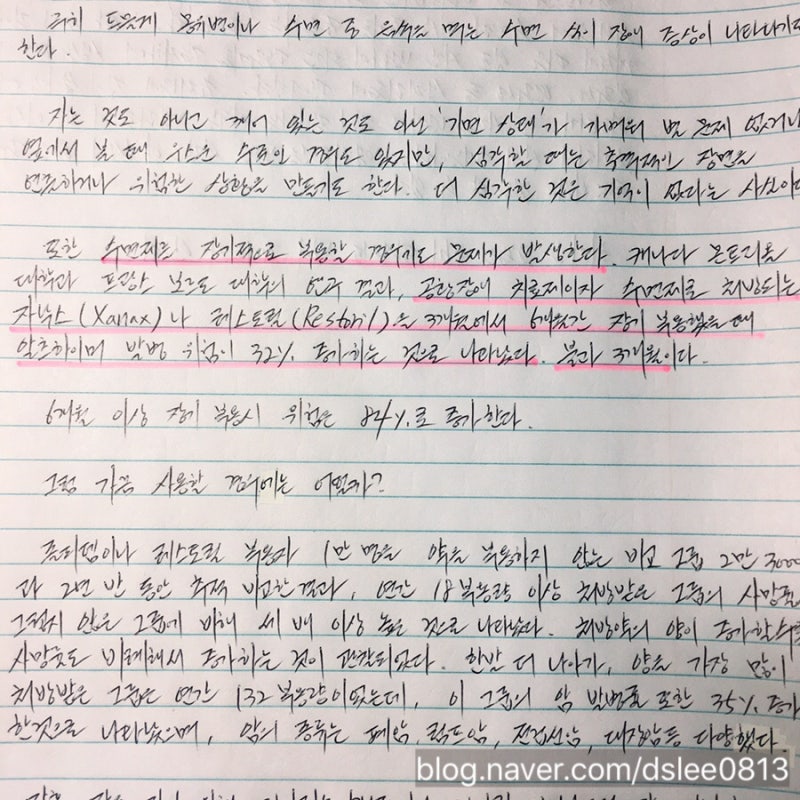 극히 드물게 몽유병이나 수면 중 음식을 먹는 수면 섭식 장애 증상이 나타나기도
한다.
자는 것도 아니고 깨어 있는 것도 아닌 '가면 상태'가 가벼워 별 문제 없거나
옆에서 볼 때 우스운 수준인 경우도 있지만, 심각할 때는 충격적인 장면을
연출하거나 위험한 상황을 만들기도 한다. 더 심각한 것은 기억이 없다는 사실이다
또한 수면제를 장기적으로 복용할 경우에도 문제가 발생한다. 캐나다 몬트리올
대학과 프랑스 보르도 대학의 연구 결과, 공황장애 치료제이자 수면제로 처방되는
자낙스(Xanax)나 레스토릴(Restoril)을 3개월에서 6개월간 장기 복용했을 때
알츠하이머 발병 위험이 32% 증가하는 것으로 나타났다. 불과 3개월이다.
6개월 이상 장기 복용시 위험은 84%로 증가한다.
그럼 가끔 사용할 경우에는 어떨까?
졸피뎀이나 레스토릴 복용자 1만 명을 약을 복용하지 않는 비교 그룹 2만 3000
과 2년 반 동안 추적 비교한 결과, 연간 18복용량 이상 처방받은 그룹의 사망률
그렇지 않은 그룹에 비해 세 배 이상 높은 것으로 나타났다. 처방약의 양이 증가할수록
사망률도 비례해서 증가하는 것이 관찰되었다. 한발 더 나아가, 약을 가장 많이
처방받은 그룹은 연간 132복용량이었는데, 이 그룹의 암 발병률 또한 35% 증가
한것으로 나타났으며, 암의 종류는 폐암, 림프암, 전립선암, 대장암등 다양했다.
blog.naver.com/dslee0813